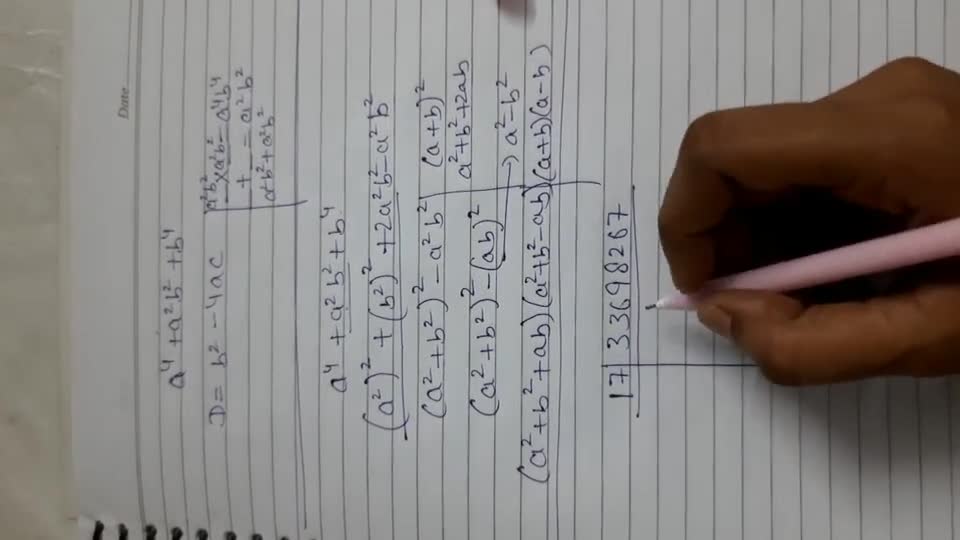 Date
a⁴ + a²b² + b⁴
D = b² - 4ac
a²b² × a²b² = a⁴b⁴
+ = a²b²
a²b² + a²b²
a⁴ + a²b² + b⁴
(a²)² + (b²)² + 2a²b² - a²b²
(a² + b²)² - a²b²
(a+b)²
a²+b²+2ab
(a² + b²)² - (ab)²
→ a² - b²
(a² + b² + ab)(a² + b² - ab)
(a+b)(a-b)
17 33698267